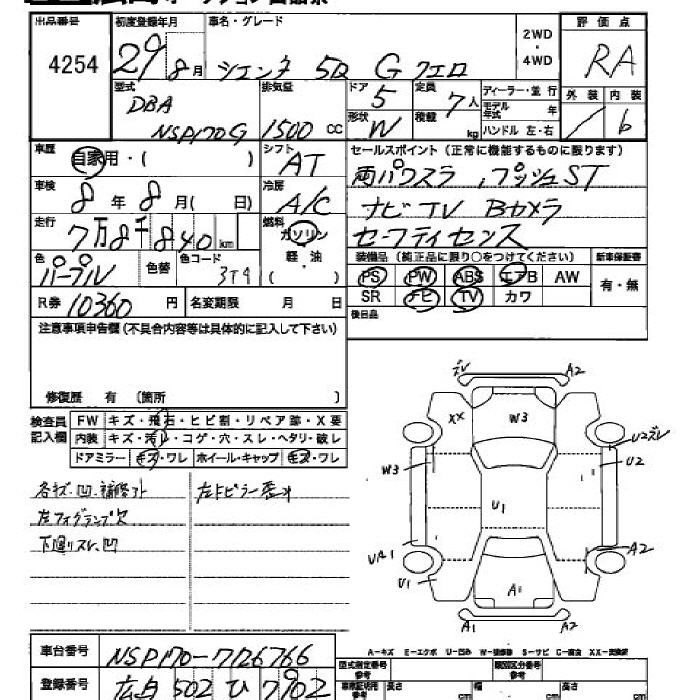 出品番号 4254
初度登録年月 29 8月
車名・グレード シエンタ 5D G クエロ
2WD・4WD
評価点 RA
型式 DBA NSP170G
排気量 1500 cc
ドア 5
形状 W
定員 7人
積載 kg
ディーラー・並行
モデル年式 年
ハンドル 左・右
外装 / 内装 6
車歴 自家用・( )
シフト AT
セールスポイント(正常に機能するものに限ります)
両パワスラ,プッシュST
車検 8年8月( 日)
冷房 A/C
ナビTV Bカメラ
走行 7万8千840km
燃料 ガソリン 軽・油 ( )
セーフティセンス
色 パープル 色替 色コード 3T9
装備品(純正品に限り○をつけてください)
新車保証書 有・無
PS PW ABS エアB AW
SR ナビ TV カワ
R券 10360円 名変期限 月 日
後日品
注意事項申告欄(不具合内容等は具体的に記入して下さい)
修復歴 有 〔箇所 〕
検査員記入欄
FW キズ・飛石・ヒビ割・リペア跡・X要
内装 キズ・汚レ・コゲ・穴・スレ・ヘタリ・破レ
ドアミラー キズ・ワレ ホイール・キャップ キズ・ワレ
各キズ.凹.補修跡
左フォグランプ欠
下廻リスレ.凹
ズレ A2
XX W3
U2ズレ
W3 U2
U1
UA1 A2
U1 A1
A1 A2
A-キズ E-エクボ U-凹み W-補修跡 S-サビ C-腐食 XX-交換済
車台番号 NSP170-7126766
登録番号 広島 502 ひ 7902
型式指定番号 参考
類別区分番号 参考
高さ cm 幅 cm 長さ cm